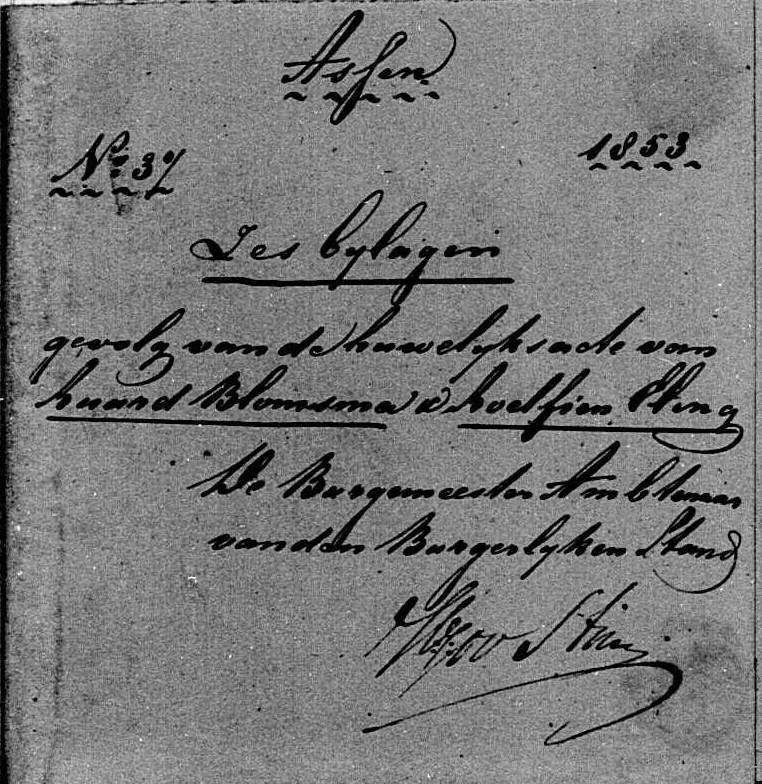 Assen
No. 37 1853
Zes bylagen
gevolg van de huwelyksacte van
huard Blomsma & hoelfien Eting
De Burgemeester Ambtenaar
van den Burgerlyken Stand